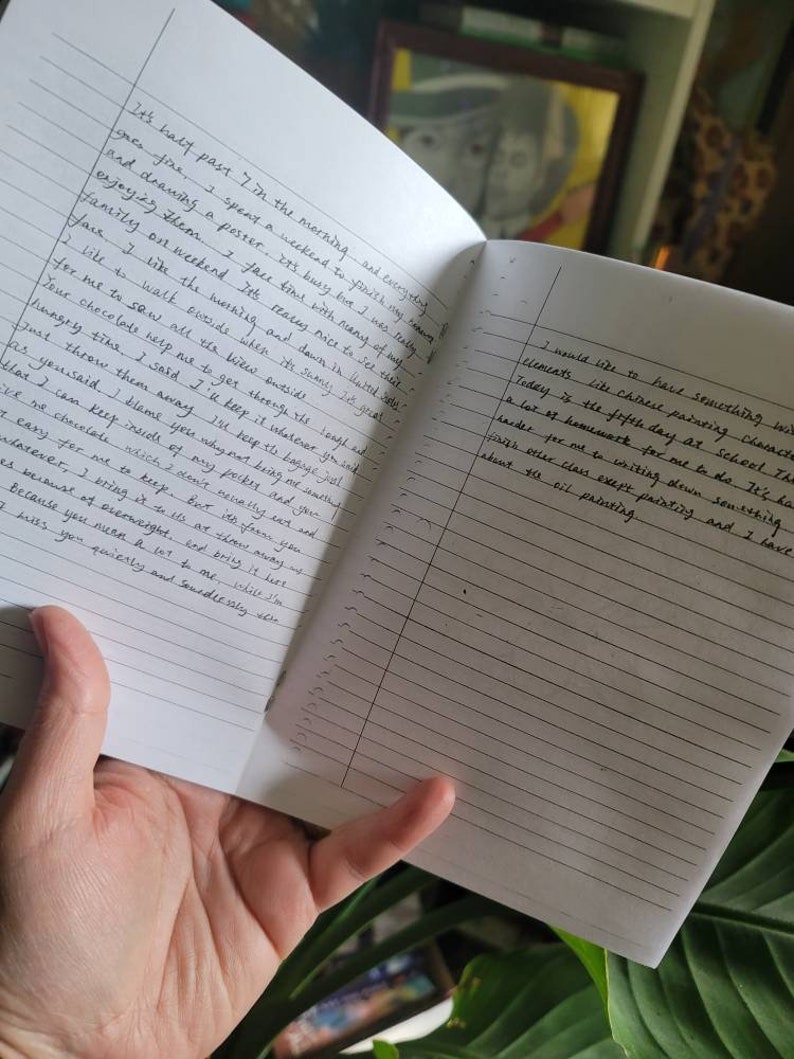 It's half past 7 in the morning, and everyday
goes fine, I spent a weekend to finish my
and drawing a poster. It's busy but I was really
enjoying them. I face time with many of my
family on weekend It's really nice to see their
face, I like the morning and dawn in United
I like to walk outside when it's sunny It's great
for me to saw all the view outside
Your chocolate help me to get through the tough and
hungry time, I said I'll keep it whatever you said
Just throw them away I'll keep the bagage just
as you said, I blame you why not being me something
that I can keep inside of my pocket and you
me chocolate which I don't usually eat and
easy for me to keep. But it's from you
whatever, I bring it to US at throw away
because of overweight, and bring it here
Because you mean a lot to me, while I'm
miss you quietly and
I would like to have something
elements like Chinese painting
Today is the fifth day at School
a lot of homework for me to do It's
for me to writing down something
finish other class exept painting and I have
about the oil painting